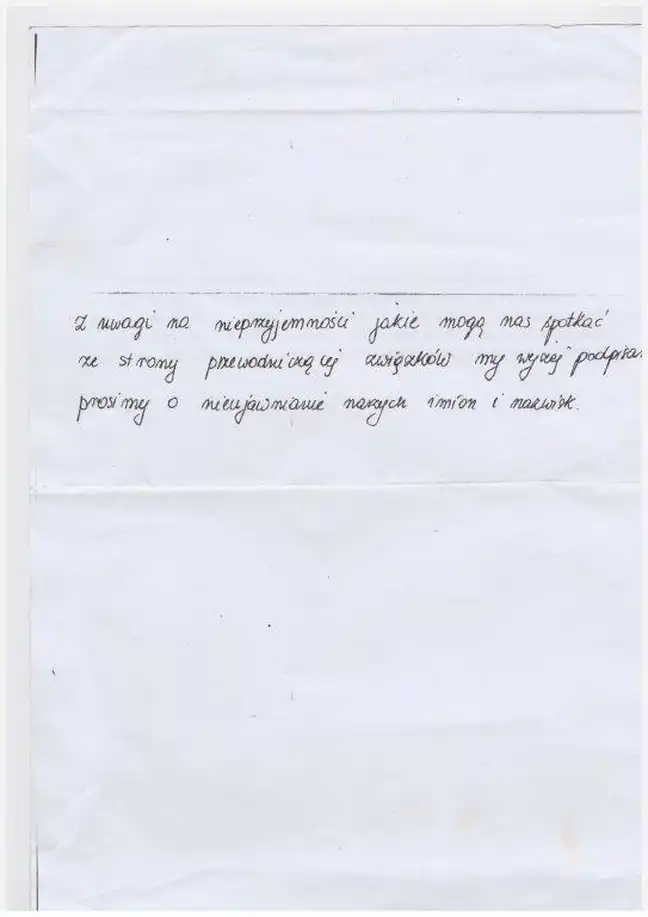 Z uwagi na nieprzyjemności jakie mogą nas spotkać
ze strony przewodniczącej związków my wyżej podpisa
prosimy o nieujawnianie naszych imion i nazwisk.